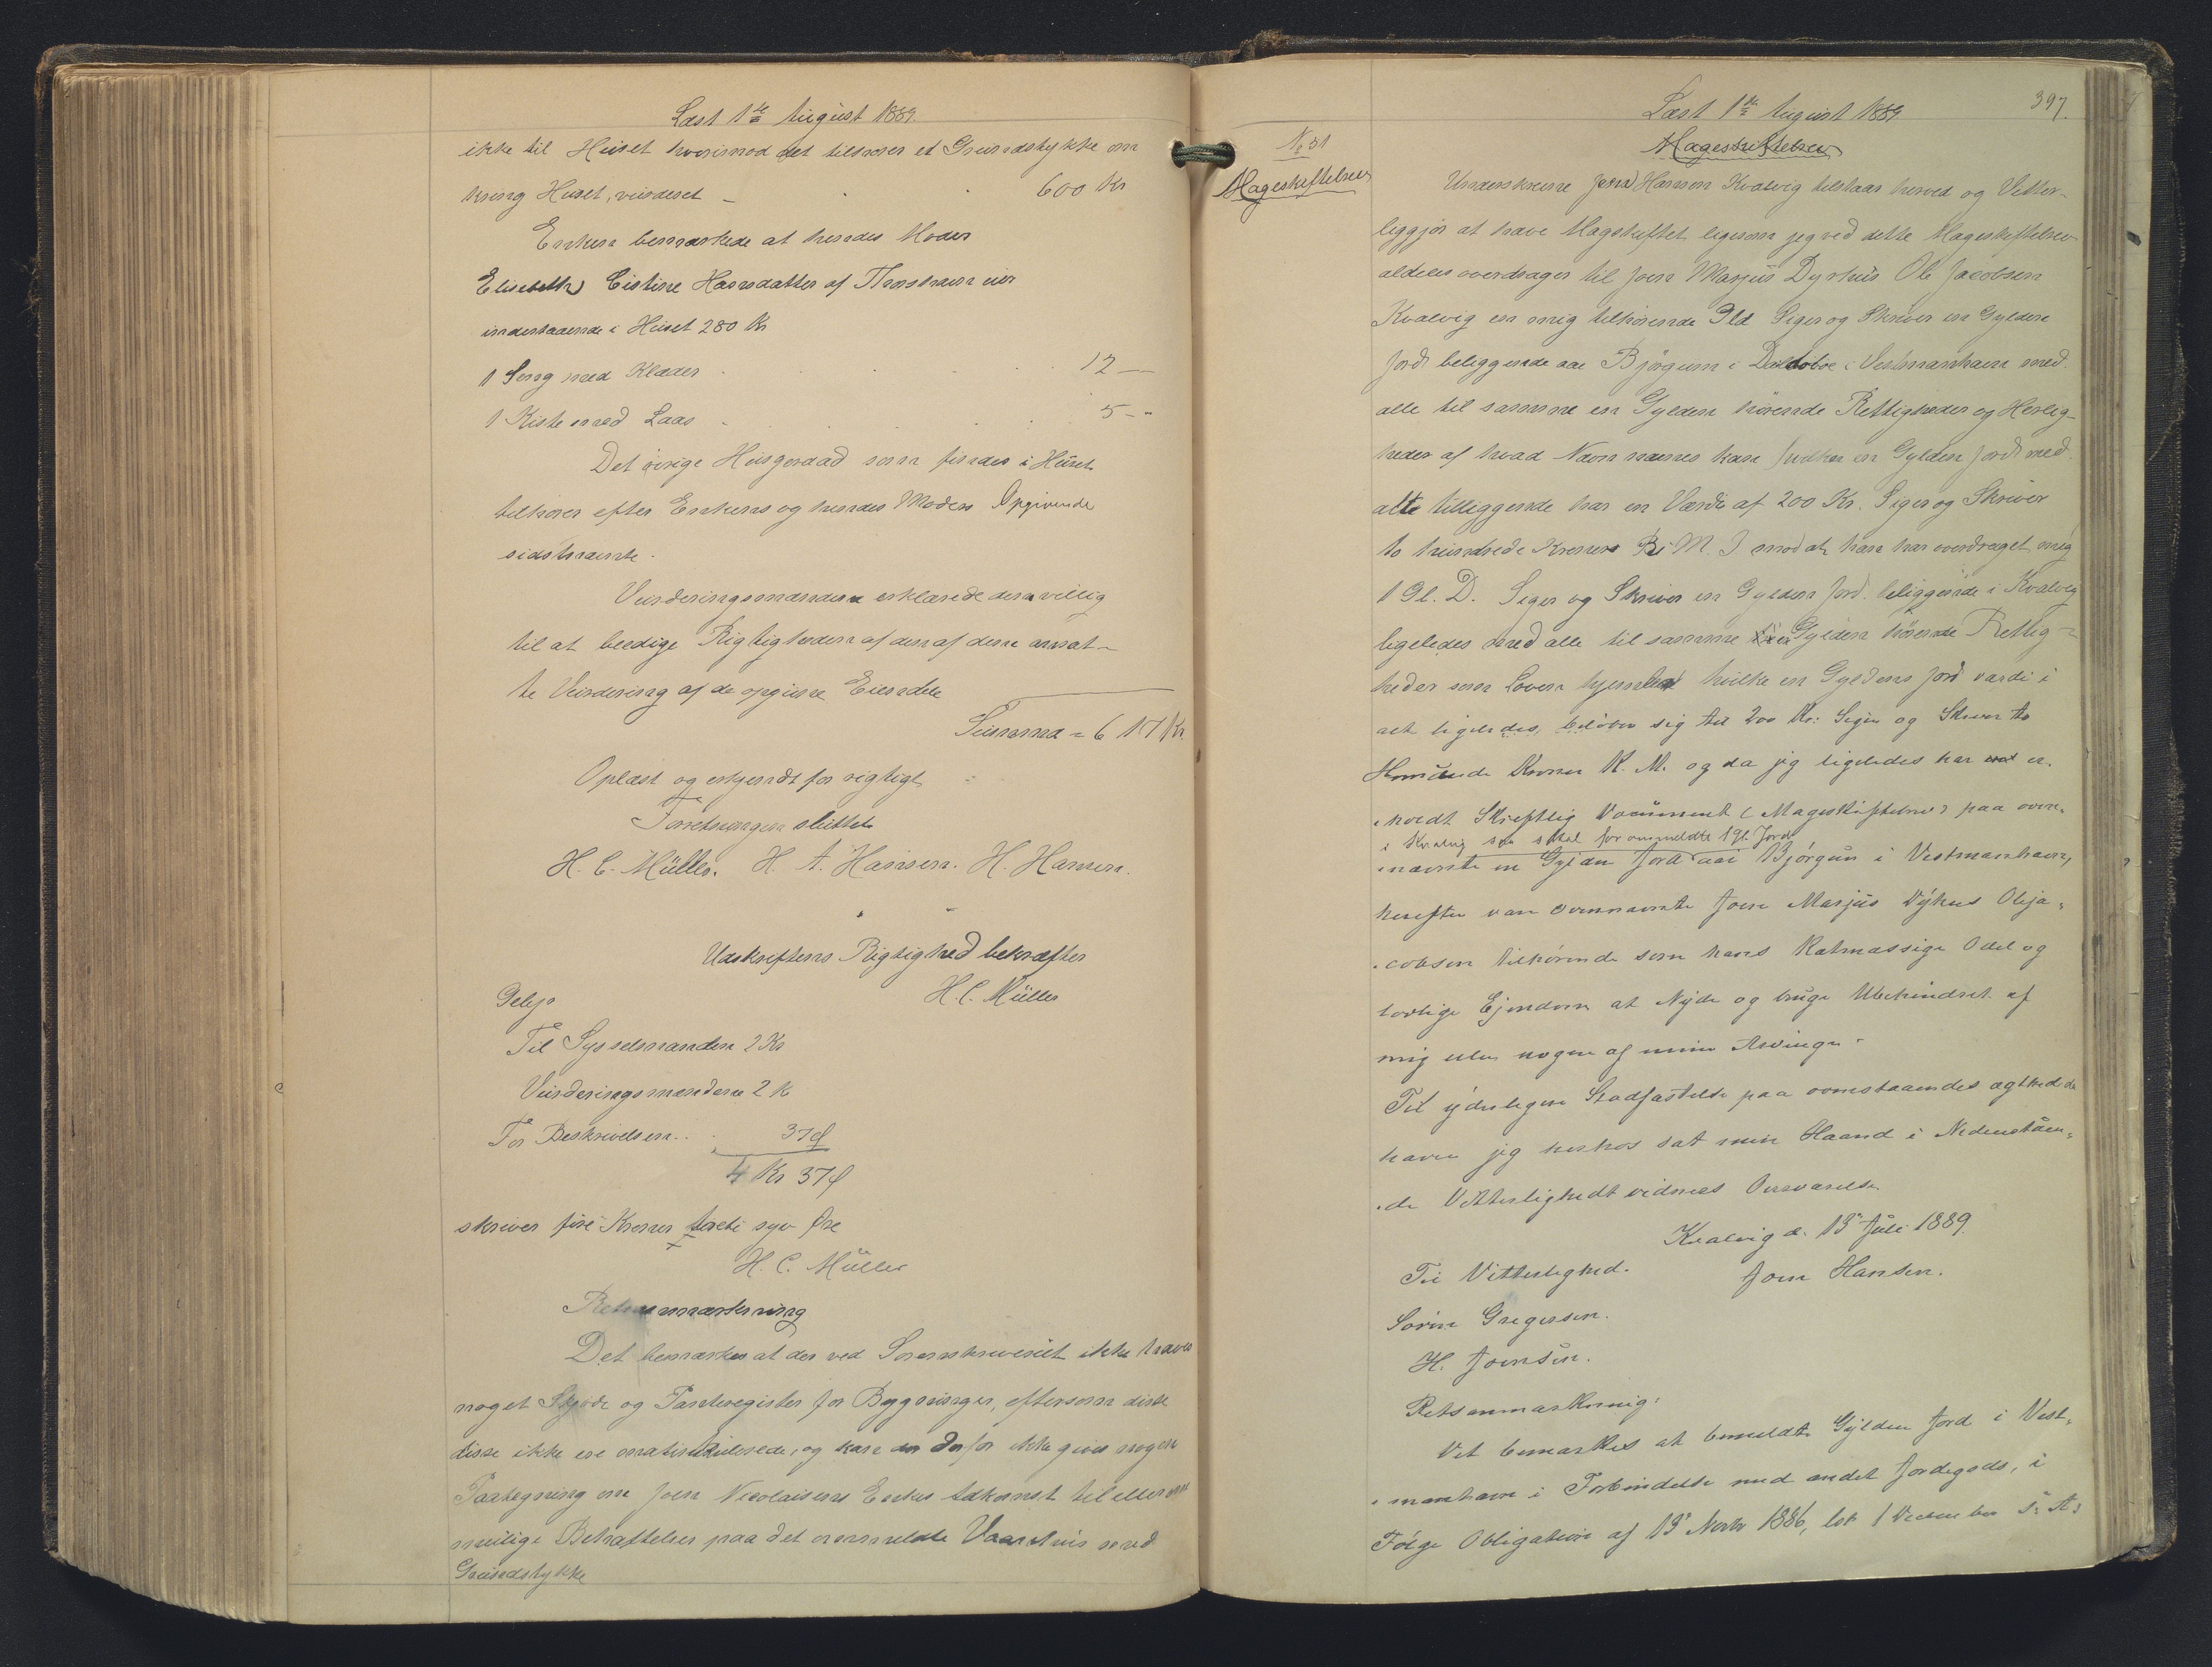 Læst 1ste August 1889.
ikke til Huset hvorimod det tilhører et Grundstykke om
kring Huset, vurderet — 600 Kr
Enken bemærkede at hendes Moder
Elisebeth Cistine Hansdatter af Thorshavn eier
indestaaende i Huset 280 Kr
1 Seng med Klæder 12 —
1 Kiste med Laas 5 - "
Det øvrige Huusgeraad som findes i Huset
tilhører efter Enkens og hendes Moders Opgivende
sidstnævnte.
Vurderingsmændene erklærede dem villig
til at beedige Rigtigheden af den af dem ansat-
te Vurdering af de opgivne Eiendele
Summa = 617 Kr.
Oplæst og erkjendt for rigtigt
Forretningen sluttet
H. C. Müller. H. A. Hansen. H. Hansen.
Udskriftens Rigtighed bekræfter
H. C. Müller
Gebyr
Til Sysselmanden 2 Kr
Vurderingsmændene 2 K
For Beskrivelsen.. 37 Ø
4 Kr 37 Ø
skriver fire Kroner treti syv Øre
H. C. Müller
Retsanmærkning
Det bemærkes at der ved Sorenskriveriet ikke haves
noget Skjøde og Panteregister for Bygninger, eftersom diste
disse ikke ere matrikulerede, og kan der derfor ikke gives nogen
Paategning om Joen Nicolaisens Enkes Adkomst til eller om
mulige Behæftelser paa det ovenmeldte Vaaenhuis med
Grundstykke
397.
Læst 1ste August 1889
No 51
Mageskiftebrev
Mageskiftebrev
Underskrevne Joen Hansen Kvalvig tilstaar herved og Vitter-
liggjør at have Mageskiftet ligesom jeg ved dette Mageskiftebrev
aldeles overdrager til Joen Marjus Dyrhuis Ole Jacobsen
Kvalvig en mig tilhørende Gld Siger og Skriver en Gylden
Jord beliggende aae Bjørgum i Vestmanhavn med
alle til samme en Gylden hørende Rettigheder og Herlig-
heder af hvad Navn nævnes kan hvilken en Gylden Jord med
alt tilliggende har en Værdi af 200 Kr. Siger og Skriver
to hundrede Kroner R. M. I mod at han har overdraget mig
1 Gl. D. Siger og Skriver en Gylden Jord beliggende i Kvalvig
ligeledes med alle til samme en Gylden hørende Rettig-
heder som Loven hjemler hvilke en Gyldens Jord værdi i
alt ligeledes beløber sig til 200 Kr: Siger og Skriver to
Hunrede Kroner R. M. og da jeg ligeledes har er-
holdt Skriftlig Document (Mageskiftebrev) paa oven-
i Kvalvig saa skal for ommeldte 1 Gl. Jord
nævnte en Gylden Jord aae Bjørgum i Vestmanhavn,
herefter være ovennævnte Joen Marjus Dýhus Oleja-
cobsen tilhørende som hans Ratmæssige Odel og
lovlige Ejendom at Nyde og bruge Ubehindret af
mig eller nogen af mine Arvinger.
Til yderligere Stadfæstelse paa ovenstaaendes ægthed
haver jeg herhos sat min Haand i Nedenståen-
de Vitterlighedt vidners Overværelse
Kvalvig d. 13' Juli 1889.
Til Vitterlighed. Joen Hansen.
Sørin Gregersen.
H. Joensen.
Retsanmærkning:
Det bemærkes at bemeldte Gylden Jord i Vest-
manhavn i Forbindelse med andet Jordegods, i
Følge Obligation af 13' Novbr 1886, lst 1 December s: A: